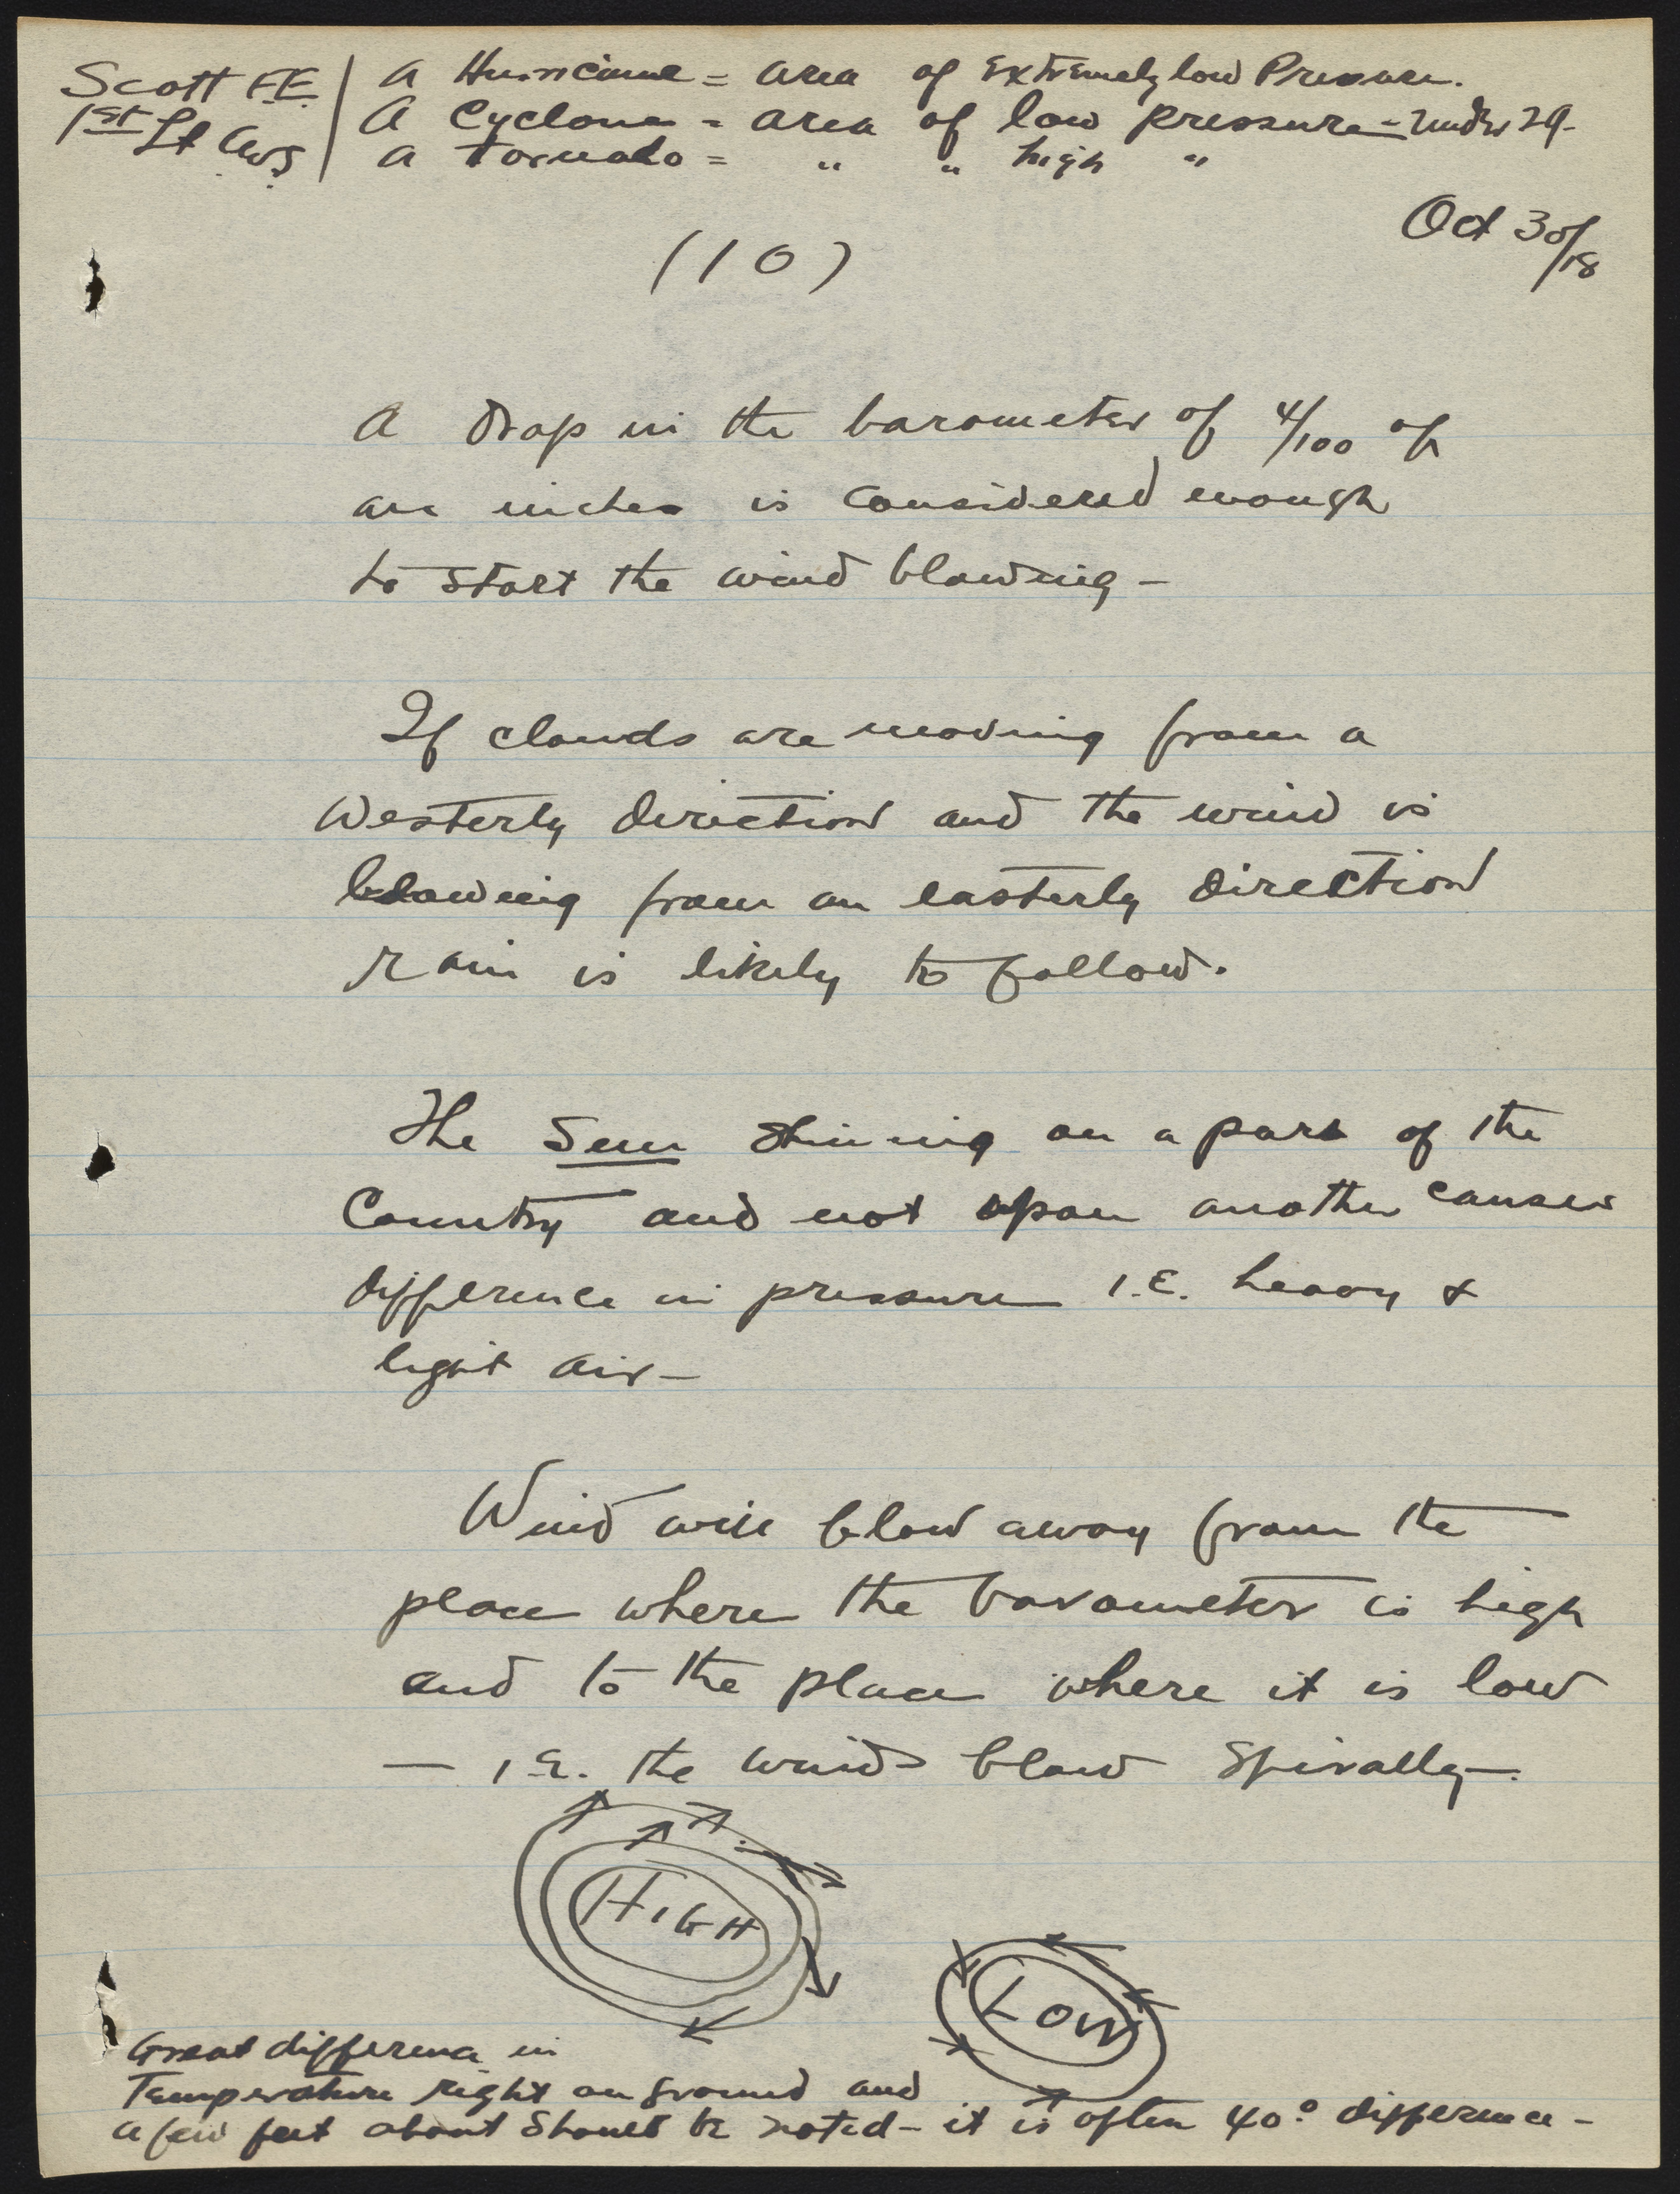 Scott F.E.
1st Lt A.S.
A Hurricane = area of Extremely low Pressure.
A Cyclone = area of low pressure - under 29.
A Tornado = " " high "
Oct 30/18
(10)
A Drop in the barometer of 4/100 of
an inches is considered enough
to start the wind blowing -
If clouds are moving from a
Westerly direction and the wind is
blowing from an easterly direction
rain is likely to follow.
The Sun shining on a part of the
Country and not upon another causes
difference in pressure I.E. heavy &
light air -
Wind will blow away from the
place where the barometer is high
and to the place where it is low
- I.E. the winds blow spirally -.
HIGH
LOW
Great difference in
Temperature right on ground and
a few feet about should be noted - it is often 40.° difference -